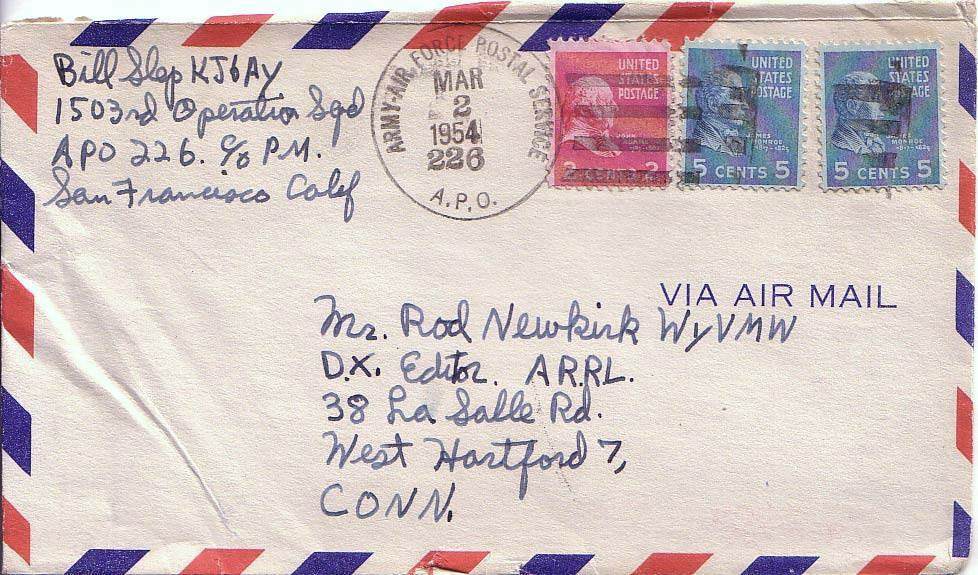 Bill Slep KJ6AY
1503rd Operation Sqd
APO 226. c/o P.M.
San Francisco Calif
ARMY-AIR FORCE POSTAL SERVICE
MAR
2
1954
226
A.P.O.
UNITED
STATES
POSTAGE
JOHN
ADAMS
2 CENTS 2
UNITED
STATES
POSTAGE
JAMES
MONROE
1817-1825
5 CENTS 5
UNITED
STATES
POSTAGE
JAMES
MONROE
1817-1825
5 CENTS 5
VIA AIR MAIL
Mr. Rod Newkirk W9VMW
D.X. Editor. ARRL.
38 La Salle Rd.
West Hartford 7,
CONN.